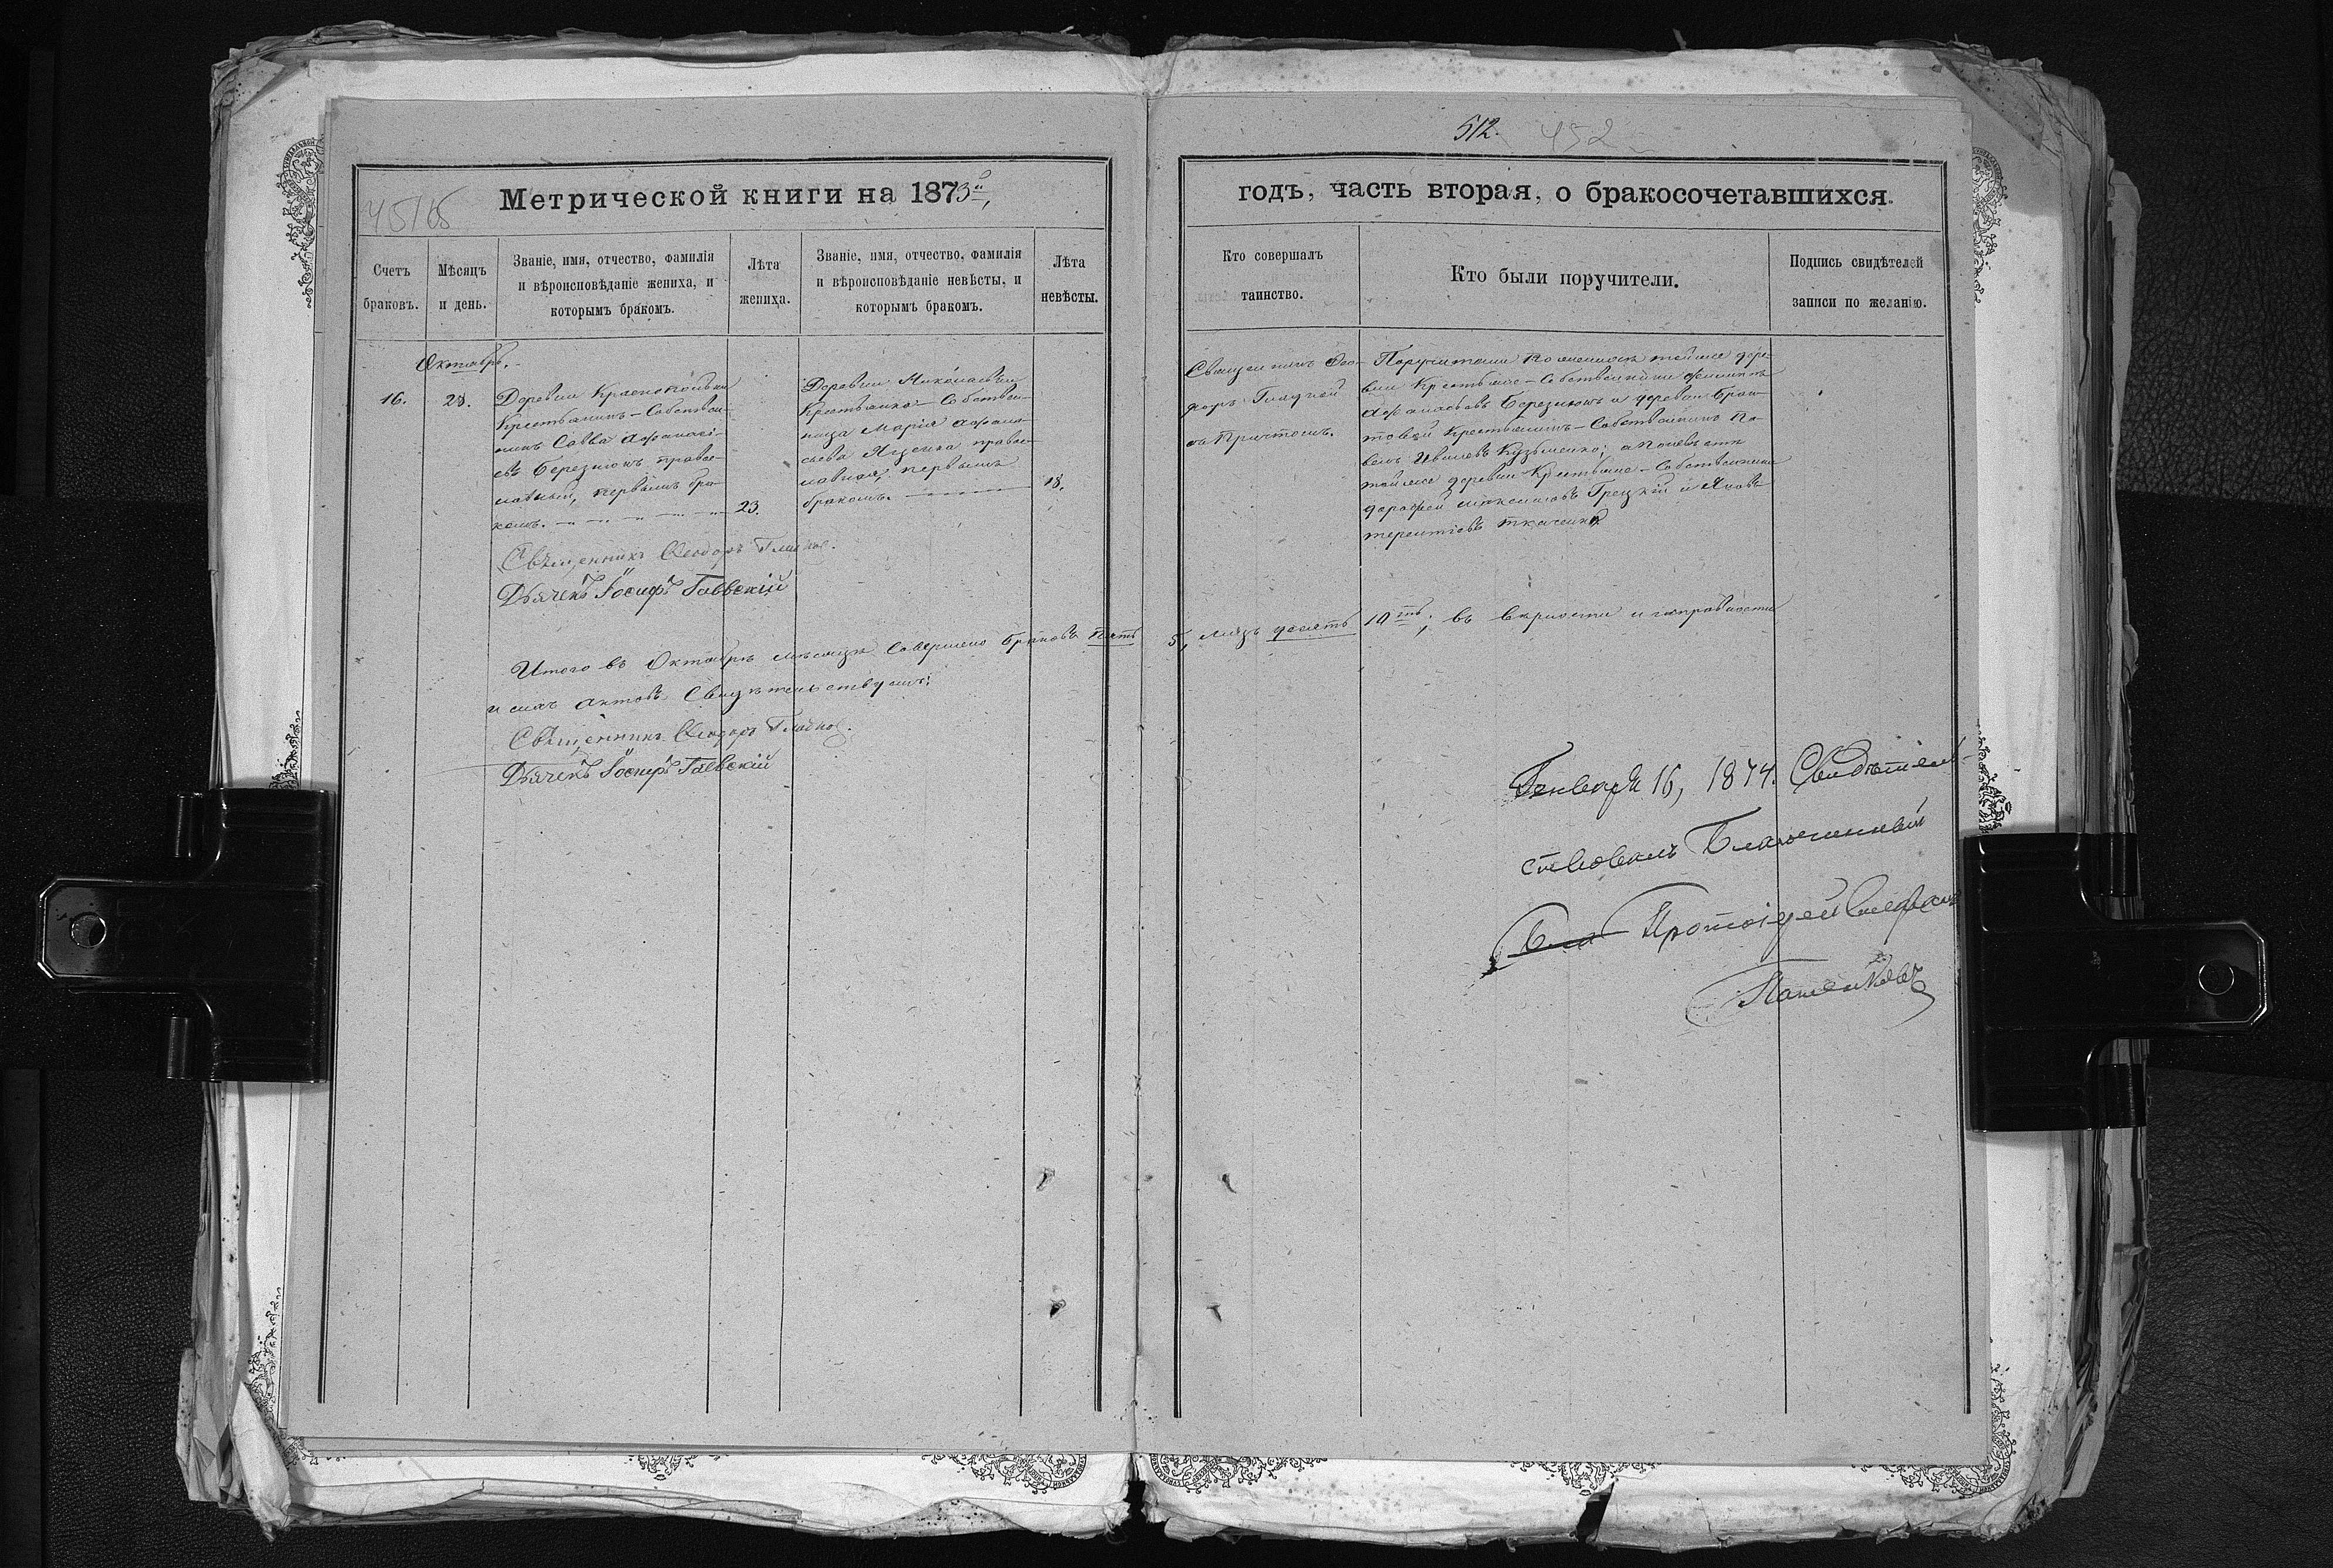 512. 452
45/65
Метрической книги на 1873й
годъ, часть вторая, о бракосочетавшихся.
Счетъ браковъ.
Мѣсяцъ и день.
Званіе, имя, отчество, фамилія
и вѣроисповѣданіе жениха, и
которымъ бракомъ.
Лѣта жениха.
Званіе, имя, отчество, фамилія
и вѣроисповѣданіе невѣсты, и
которымъ бракомъ.
Лѣта невѣсты.
Кто совершалъ
таинство.
Кто были поручители.
Подпись свидѣтелей
записи по желанію.
Октябрь.
16.
28.
Деревни Краснополки
Крестьянинъ-Собствен-
никъ Савва Афанасі-
евъ Березнюкъ правос-
лавный, первымъ бра-
комъ.
23.
Деревни Николаевки
Крестьянка-Собствен-
ница Марія Афана-
сьева Яценка правос-
лавная, первымъ
бракомъ.
18.
Священникъ Ѳео-
доръ Гладкой
съ Притчомъ.
Поручители по женихѣ тойже дере-
вни Крестьяне-Собственники Филиппъ
Афанасьевъ Березнюкъ и деревни
Крестьянинъ-Собственникъ Па-
велъ Ивановъ Кузьменко; а по невѣстѣ
тойже деревни Крестьяне-Собственники
Дорофей Максимовъ Грецкій и Яковъ
Терентіевъ Ткаченко
Священникъ Ѳеодоръ Гладкой.
Дьячекъ Іосифъ Гаевскій
Итого въ Октябрѣ мѣсяцѣ совершено браковъ пять 5, лицъ десять 10ть; въ вѣрности и исправности
и сихъ актовъ свидѣтельствуемъ:
Священникъ Ѳеодоръ Гладкой.
Дьячекъ Іосифъ Гаевскій
Генваря 16, 1874. Свидѣтель-
ствовалъ Благочинный
Протоіерей Стефанъ